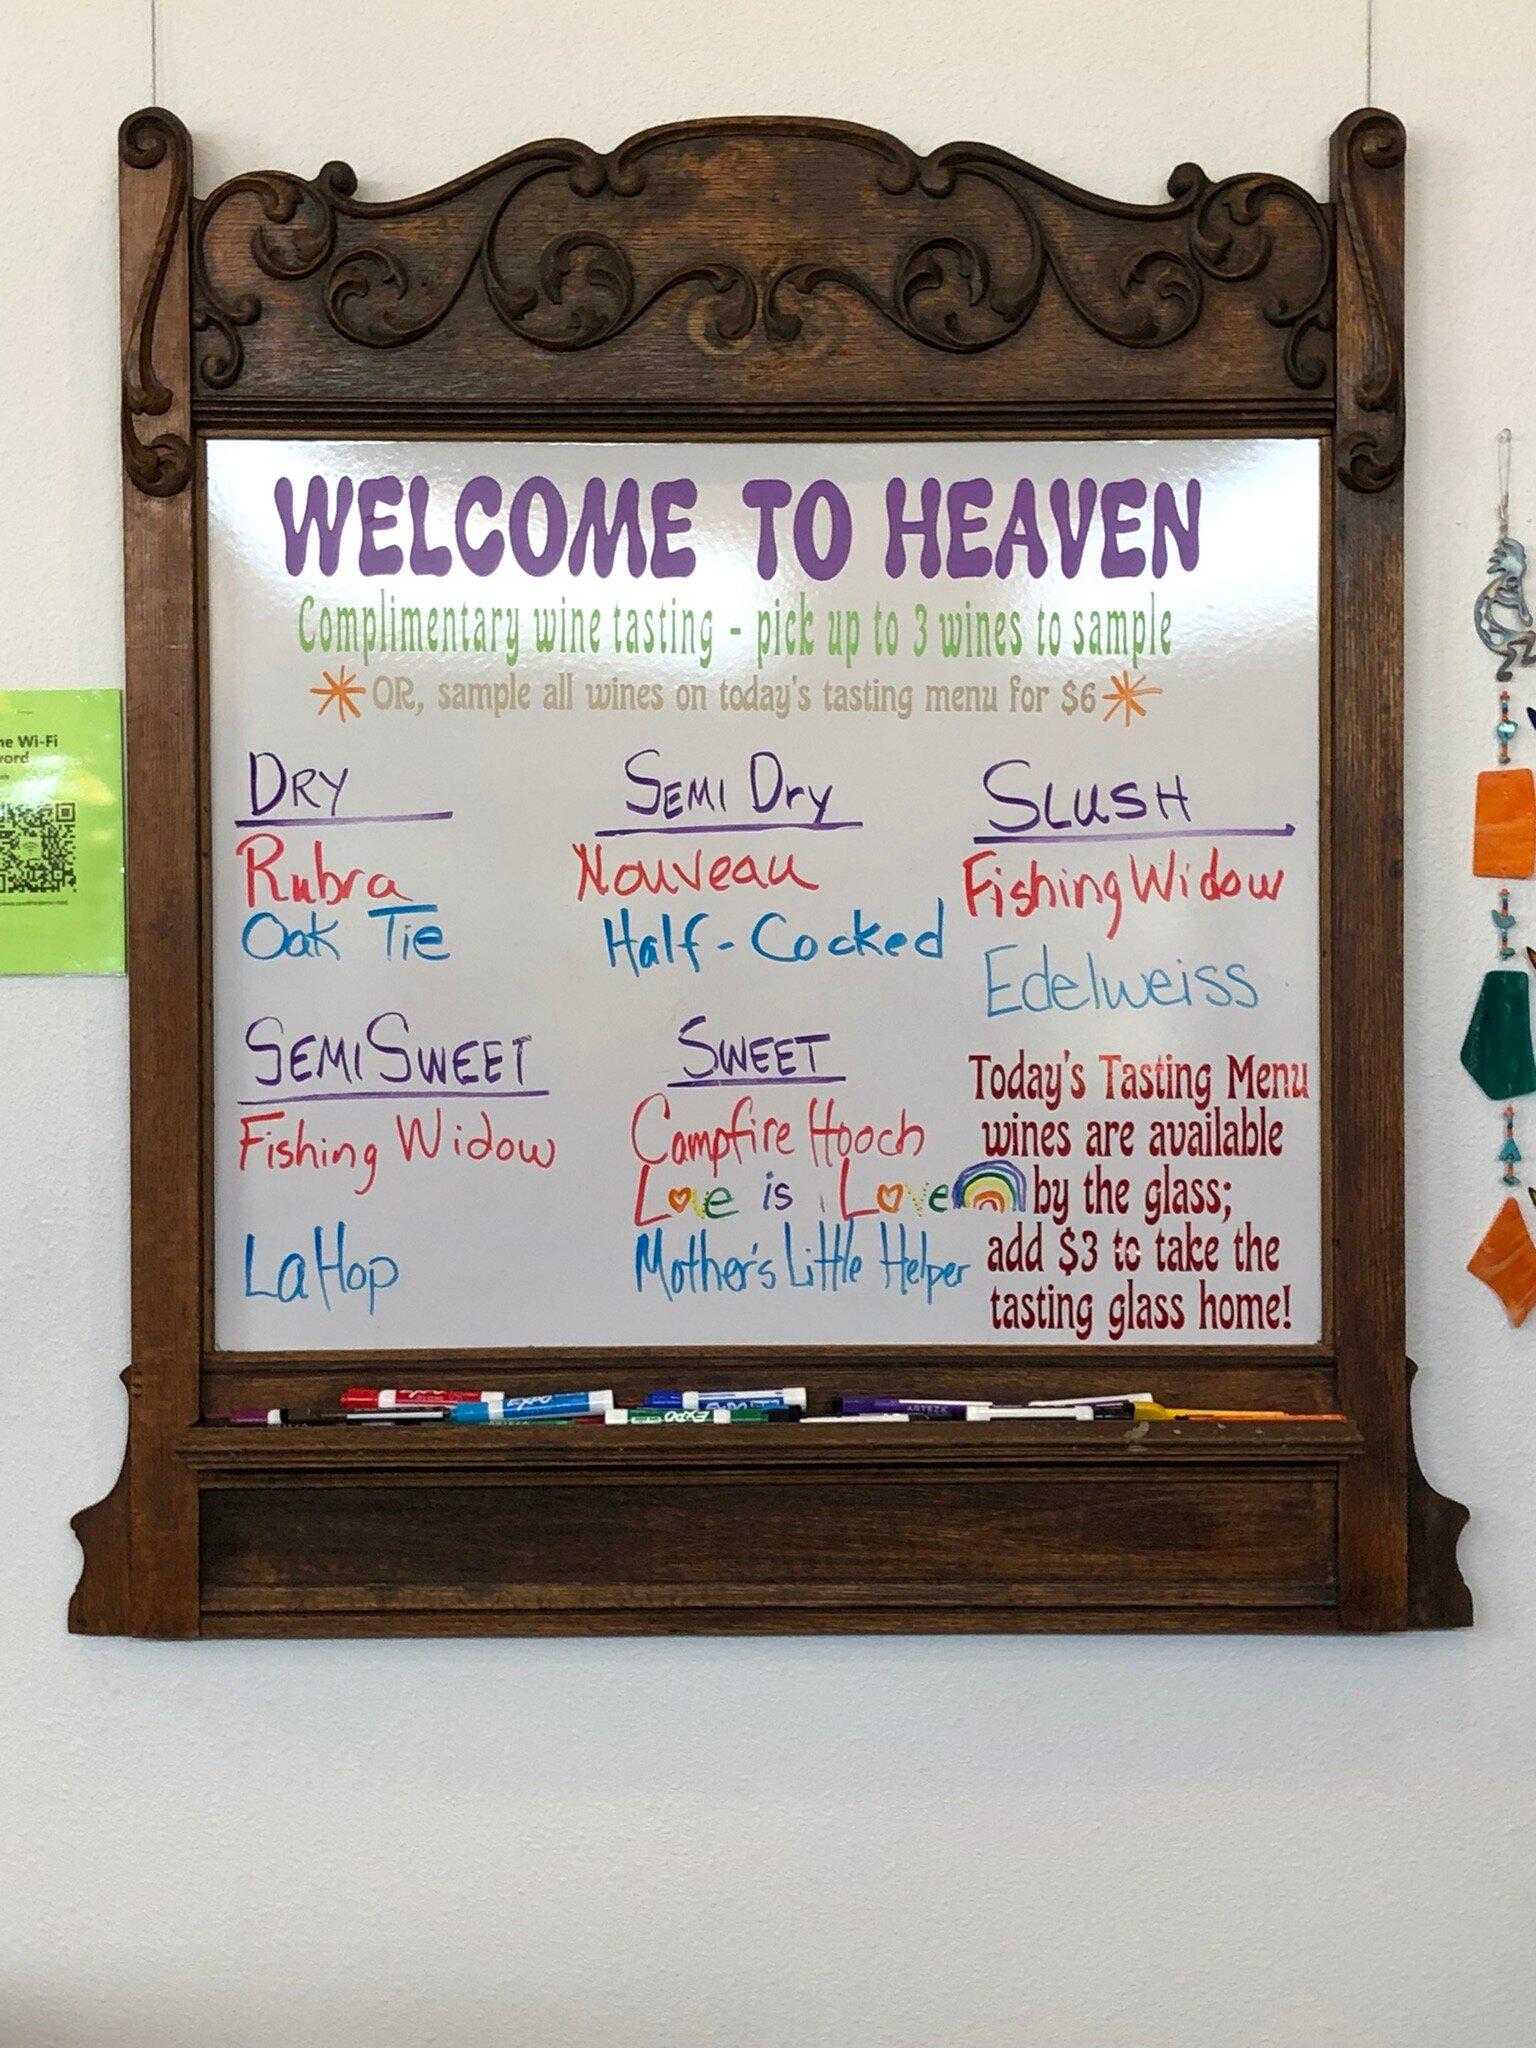 WELCOME TO HEAVEN
Complimentary wine tasting - pick up to 3 wines to sample
OR, sample all wines on today's tasting menu for $6
DRY
Rubra
Oak Tie
SEMI Dry
Nouveau
Half-Cocked
SLUSH
Fishing Widow
Edelweiss
SEMI SWEET
Fishing Widow
La Hop
SWEET
Campfire Hooch
Love is Love
Mother's Little Helper
Today's Tasting Menu
wines are available
by the glass;
add $3 to take the
tasting glass home!
Wi-Fi
EXPO